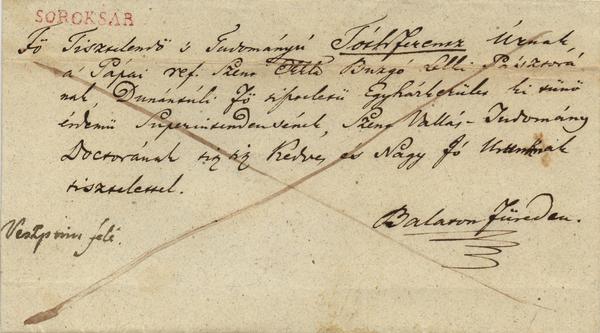 SOROKSAR
Fő Tisztelendő s Tudományú Tóth Ferencz Úrnak
á Pápai ref. Szent Buzgó Lelki Pásztorá
nak, Dunántúli Fő tiszteletű Egyházkerület ki tünő
érdemű Superintendensének, Szent Vallás-Tudomány
Doctorának Kedves és Nagy Jó Urunknak
tisztelettel.
Balaton Füreden.
Veszprim felé.